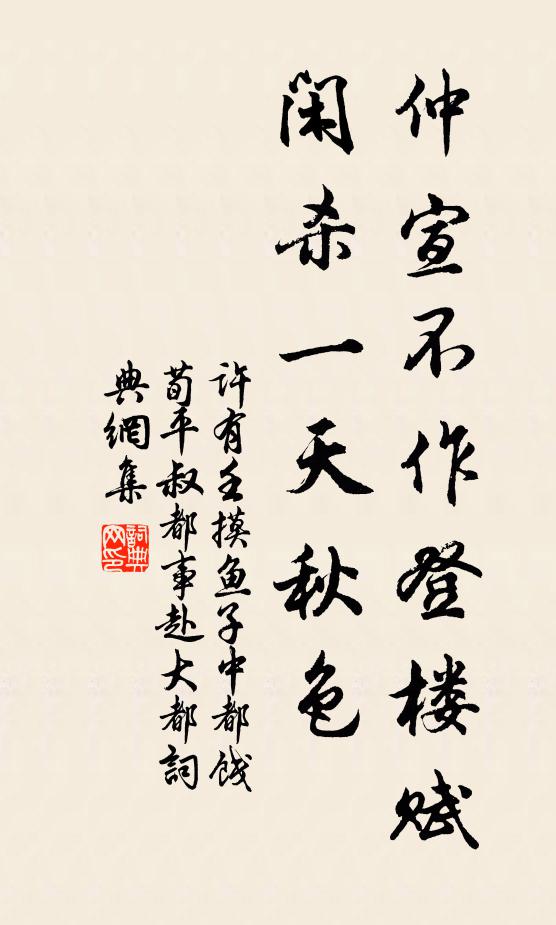 仲宣不作登楼赋
闲杀一天秋色
许有壬摸鱼子中都饯
荀平叔都事赴大都詞
典網集
詞典网印